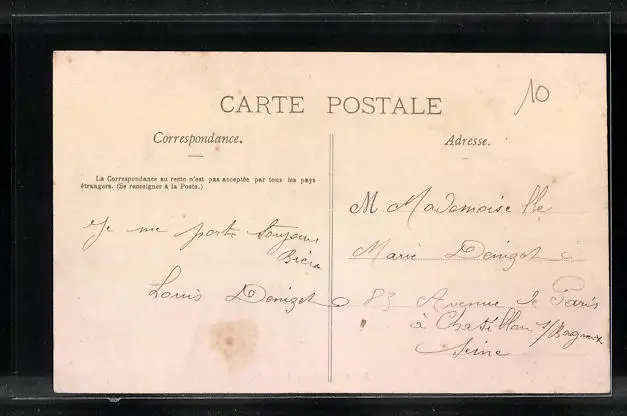 10
CARTE POSTALE
Correspondance.
La Correspondance au recto n'est pas acceptée par tous les pays
étrangers. (Se renseigner à la Poste.)
Je me porte toujours
Louis Denizot
Adresse.
M Mademoiselle
Marie Denizot
83 Avenue de Paris
à Chatillon s/Bagneux
Seine